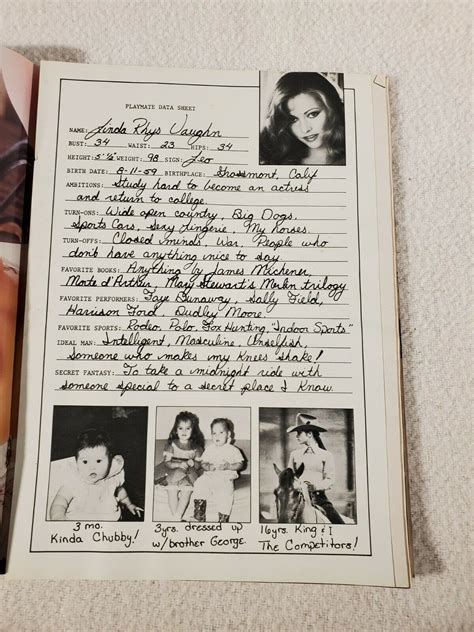 PLAYMATE DATA SHEET
NAME: Linda Rhys Vaughn
BUST: 34 WAIST: 23 HIPS: 34
HEIGHT: 5'½" WEIGHT: 98 SIGN: Leo
BIRTH DATE: 8-11-59 BIRTHPLACE: Grossmont, Calif
AMBITIONS: Study hard to become an actress
and return to college.
TURN-ONS: Wide open country, Big Dogs,
Sports Cars, Sexy lingerie, My horses.
TURN-OFFS: Closed minds, War, People who
dont have anything nice to say.
FAVORITE BOOKS: Anything by James Michener,
Morte d'Arthur, Mary Stewart's Merlin trilogy
FAVORITE PERFORMERS: Faye Dunaway, Sally Field,
Harrison Ford, Dudley Moore.
FAVORITE SPORTS: Rodeo, Polo, Fox Hunting, "Indoor Sports"
IDEAL MAN: Intelligent, Masculine, Unselfish,
Someone who makes my Knees shake!
SECRET FANTASY: To take a midnight ride with
someone special to a secret place I Know.
3 mo.
Kinda Chubby!
3yrs. dressed up
w/brother George.
16yrs. King & I
The Competitors!